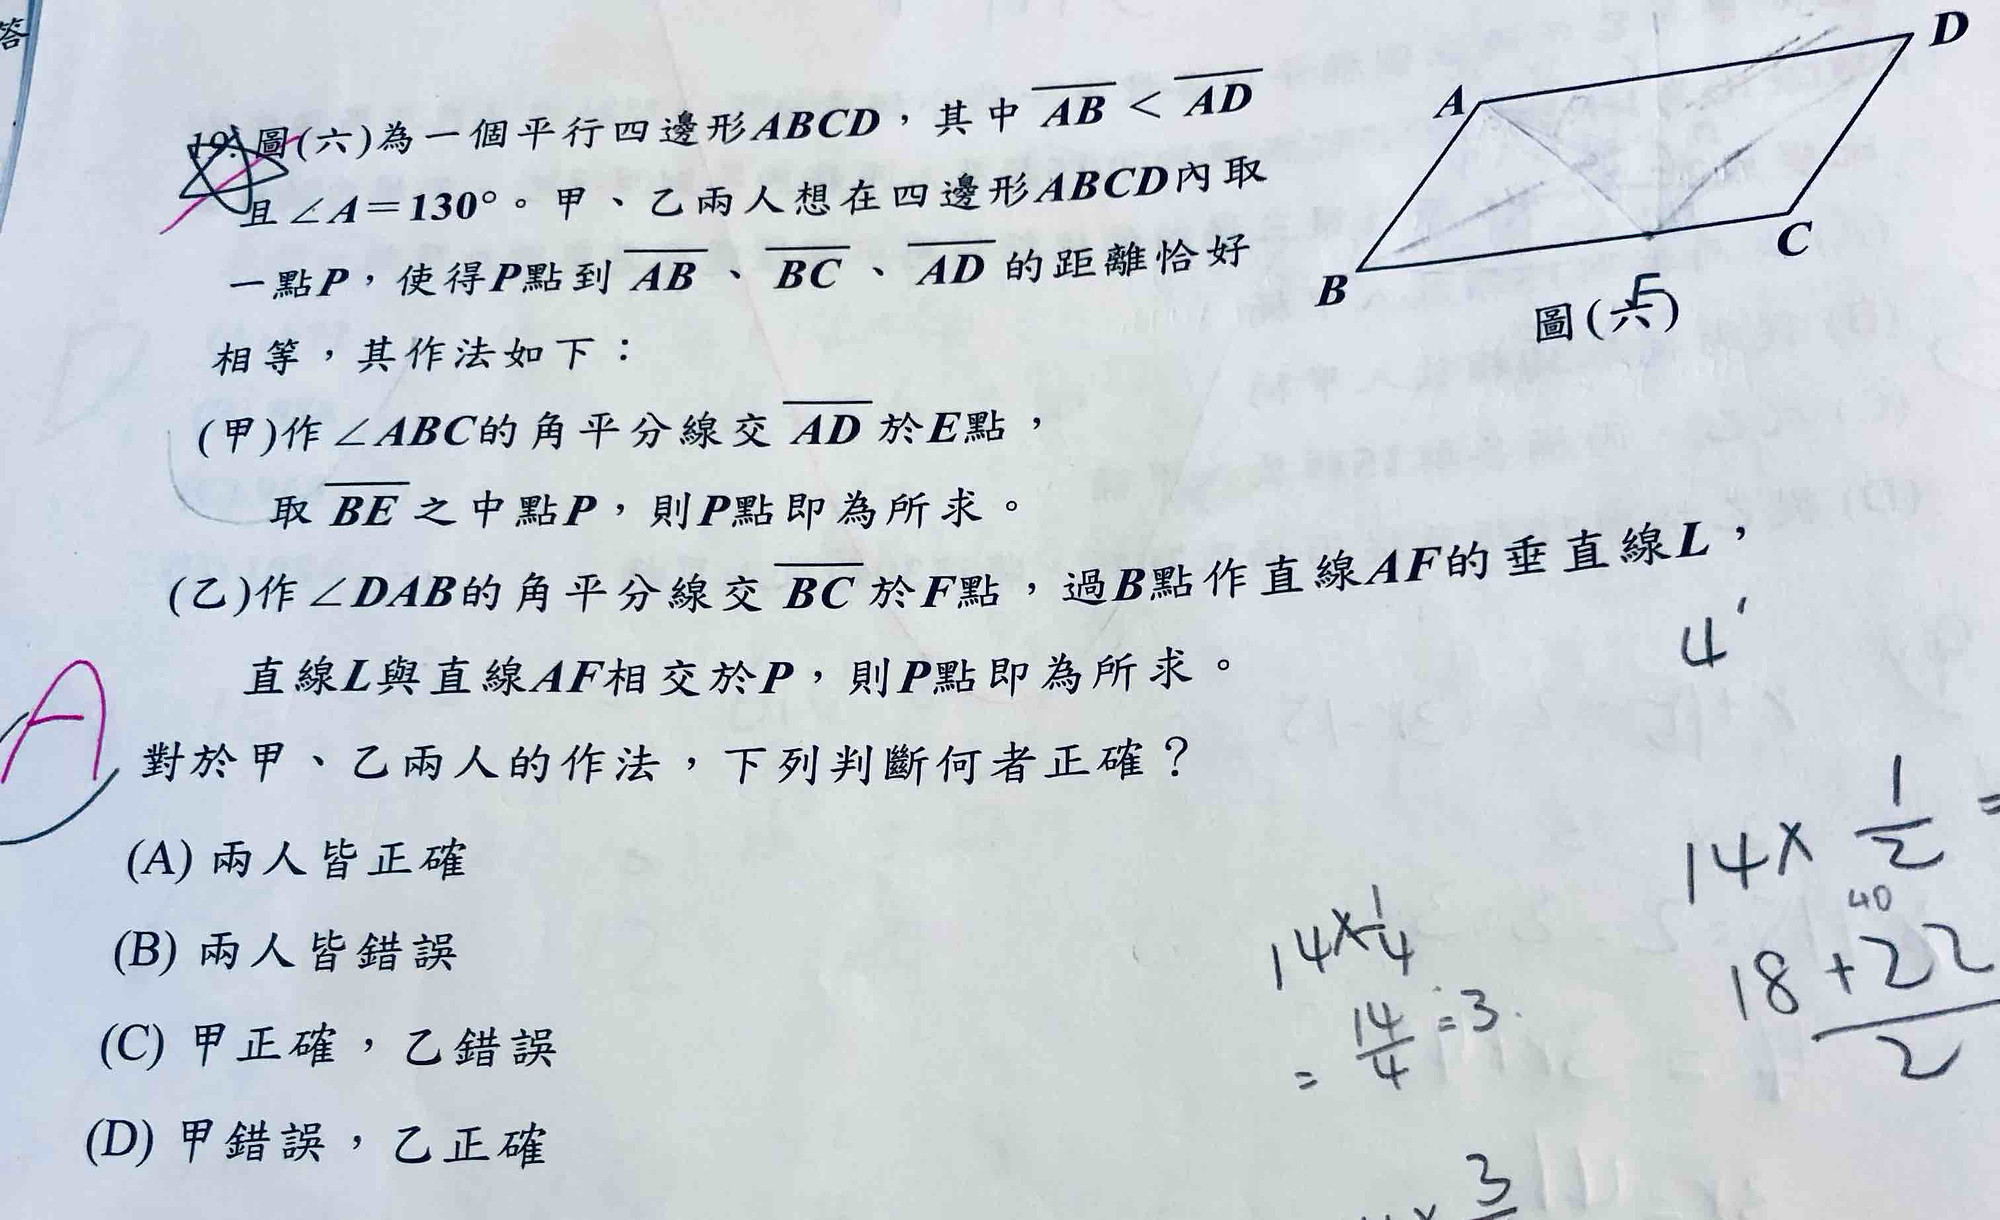 答
19. 圖(六)為一個平行四邊形ABCD，其中 AB < AD
且∠A＝130°。甲、乙兩人想在四邊形ABCD內取
一點P，使得P點到 AB 、 BC 、 AD 的距離恰好
相等，其作法如下：
A
D
B
C
圖(六)
五
(甲)作∠ABC的角平分線交 AD 於E點，
取 BE 之中點P，則P點即為所求。
(乙)作∠DAB的角平分線交 BC 於F點，過B點作直線AF的垂直線L，
直線L與直線AF相交於P，則P點即為所求。
4
A
對於甲、乙兩人的作法，下列判斷何者正確？
(A) 兩人皆正確
(B) 兩人皆錯誤
(C) 甲正確，乙錯誤
(D) 甲錯誤，乙正確
14× 1/2 =
40
18+22
2
14×1/4
= 14/4 = 3.
× 3